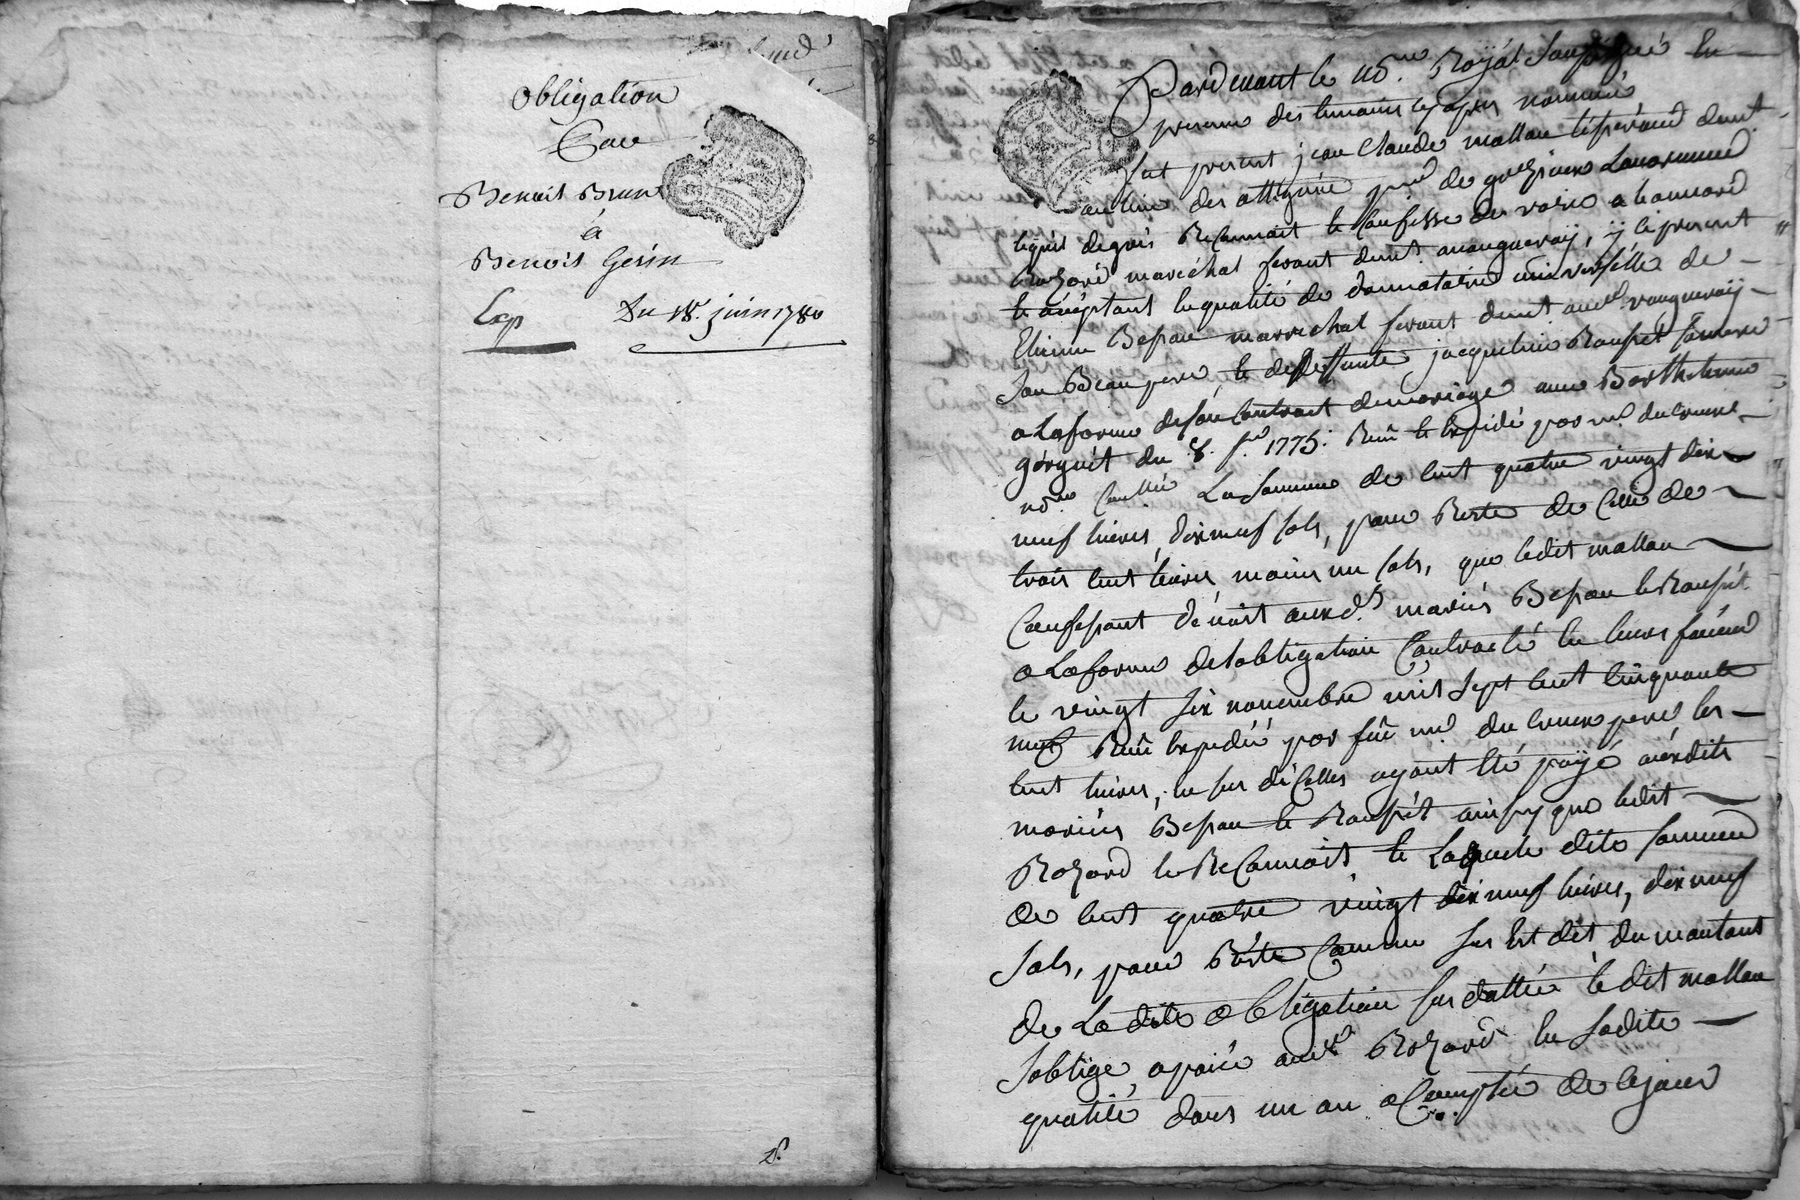 Obligation
Pour
Benoit Brun
à
Benoit Gerin
Exp
Du 18e. juin 1780
Pardevant le nore. Royal soussigné en
presence des temoins cy apres nommés
fut present jean Claude mallau demt
au lieu des attignies de
lequel degrés Reconnait et Confesse devoir a leonnard
Rozard marechal ferant demt avaugneray, y le present
et acceptant en qualité de donnataire universelle de
Etienne Bessan marechal ferant demt aud vaugneray
son Beau pere, et de deffunte jacqueline Rousset sa mere
a La forme de son Contract de mariage avec Barthelemie
du 8. f. 1775. Reçu et Expedié par me. ducreux
nore. La somme de cent quatre vingt dix
neuf livres, dix neuf sols, pour Reste de Celle de
trois cent livres moins un sols, que ledit mallau
Confessant devoit auxds. mariés Bessan et Rousset
a La forme de lobligation Contracté en leurs faveur
le vingt six novembre mil sept cent cinquante
neuf Reçu Expedié par feu me. du Creux pere les
cent livres, en sus dicelles ayant été payé auxdits
mariés Bessan et Rousset ainsy que ledit
Rozard le Reconnoit et Laquelle dite somme
de cent quatre vingt dix neuf livres, dix neuf
sols, pour Reste Comme sus Est dit du montant
de La dite obligation sus dattée ledit mallau
soblige a paier aud. Rozard en sadite
qualité dans un an a Compter de cejour